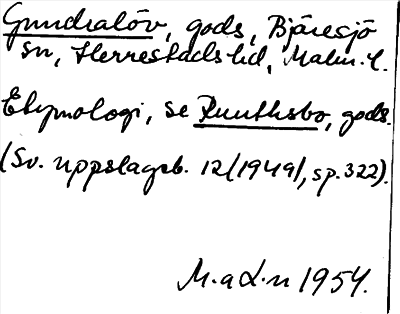 Gundralöv, gods, Bjäresjö
sn, Herrestads hd, Malm. l.
Etymologi, se Ruuthsbo, gods.
(Sv. uppslagsb. 12/1949/, sp. 322).
M. a L. n 1954.